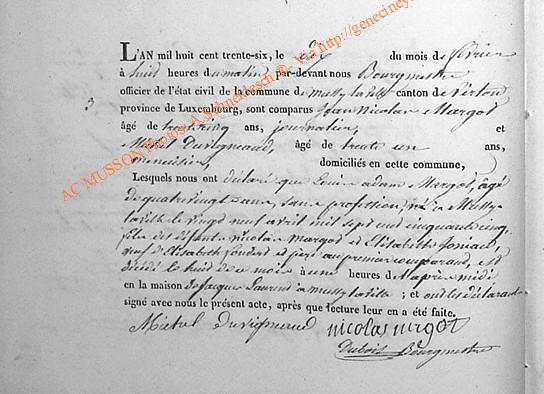 L'AN mil huit cent trente-six, le dix du mois de février
à huit heures du matin, par-devant nous Bourgmestre
officier de l'état civil de la commune de Mussy la ville canton de Virton
3
province de Luxembourg, sont comparus Jean Nicolas Margot
âgé de ans, journalier, et
Michel Duvigneaud, âgé de trente un ans,
menuisier, domiciliés en cette commune,
Lesquels nous ont déclaré que Louis adam Margot, âgé
de quatrevingt ans, sans profession, né à Mussy
laville le vingt neuf avril mil sept cent cinquante cinq,
fils des défunts Nicolas Margot et Elisabeth
veuf d'Elisabeth et père au premier comparant, est
décédé le huit de ce mois à une heures de l'après midi
en la maison de Jacques Laurent à Mussy la ville ; et ont les déclarant
signé avec nous le présent acte, après que lecture leur en a été faite.
Michel Duvigneaud nicolas mrgot
Dubois Bourgmestre
AC MUSSON Photos: A.Schnackesch ©- Via http://geneciney.